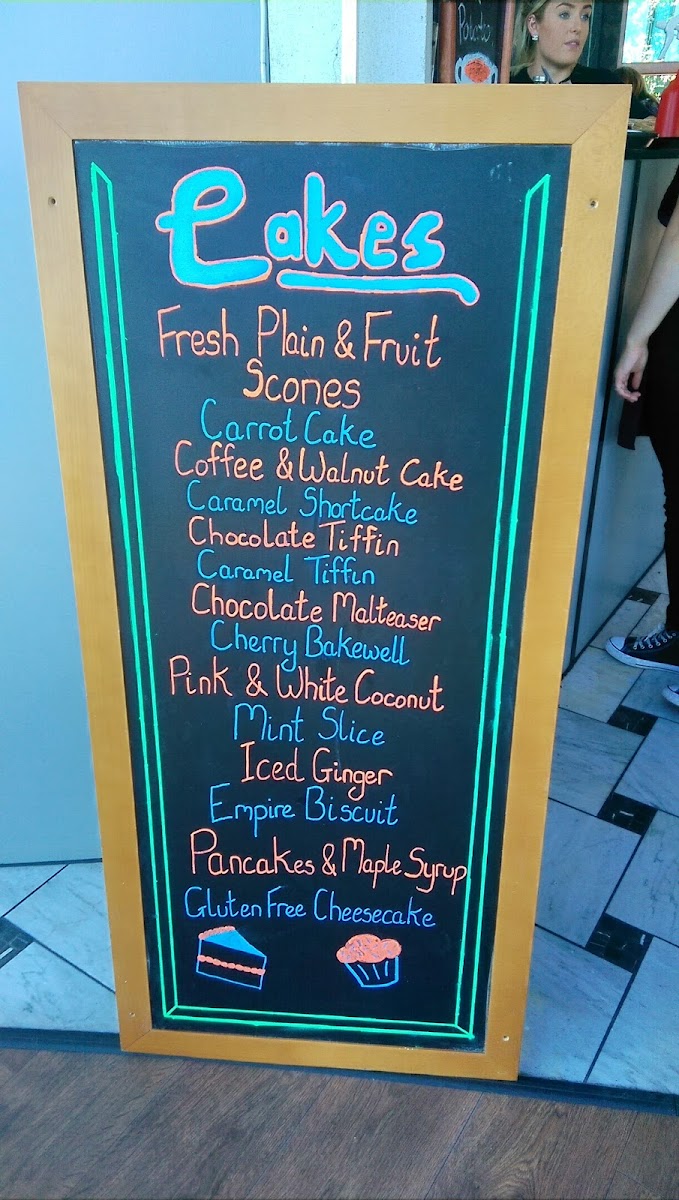 Potato
Cakes
Fresh Plain & Fruit
Scones
Carrot Cake
Coffee & Walnut Cake
Caramel Shortcake
Chocolate Tiffin
Caramel Tiffin
Chocolate Malteaser
Cherry Bakewell
Pink & White Coconut
Mint Slice
Iced Ginger
Empire Biscuit
Pancakes & Maple Syrup
Gluten Free Cheesecake